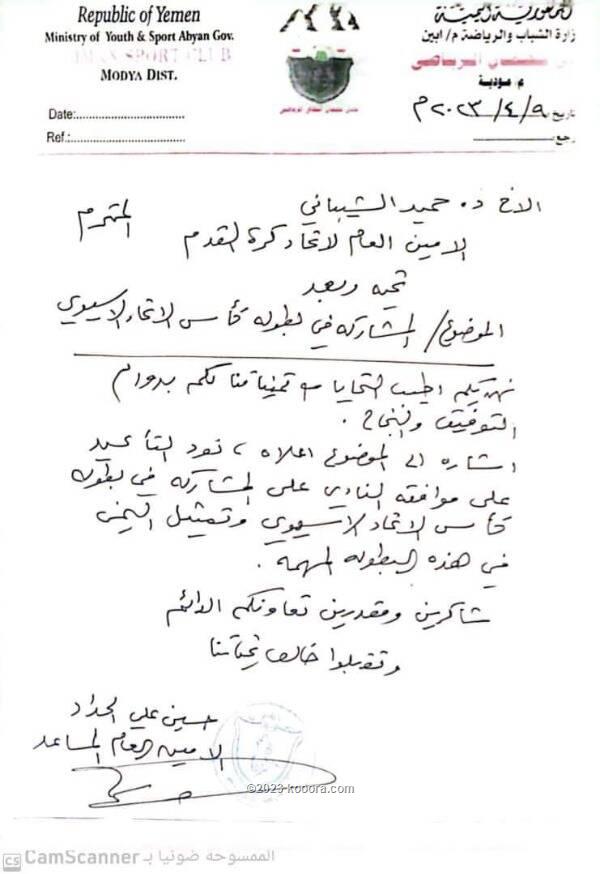 Republic of Yemen
Ministry of Youth & Sport Abyan Gov.
SPORT CLUB
MODYA DIST.
Date:
Ref.:
الجمهورية اليمنية
وزارة الشباب والرياضة م/ ابين
الرياضي
م. مودية
تاريخ ٢٠٢٣/٤/٩م
الاخ د. حميد الشيباني
المحترم
الامين العام لاتحاد كرة القدم
تحيه وبعد
الموضوع/ المشاركه في بطوله كأس الاتحاد الاسيوي
نهديكم اطيب التحايا مع تمنياتنا لكم بدوام
التوفيق والنجاح.
اشاره الى الموضوع اعلاه، نود التأكيد
على موافقه النادي على المشاركه في بطوله
كأس الاتحاد الاسيوي وتمثيل اليمن
في هذه البطوله المهمه.
شاكرين ومقدرين تعاونكم الدائم
وتقبلوا خالص تحياتنا
حسين علي الحداد
الامين العام المساعد
©2023 kooora.com
CS CamScanner الممسوحة ضوئيا بـ